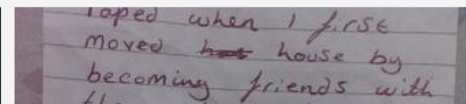 when I first
moved house by
becoming friends with